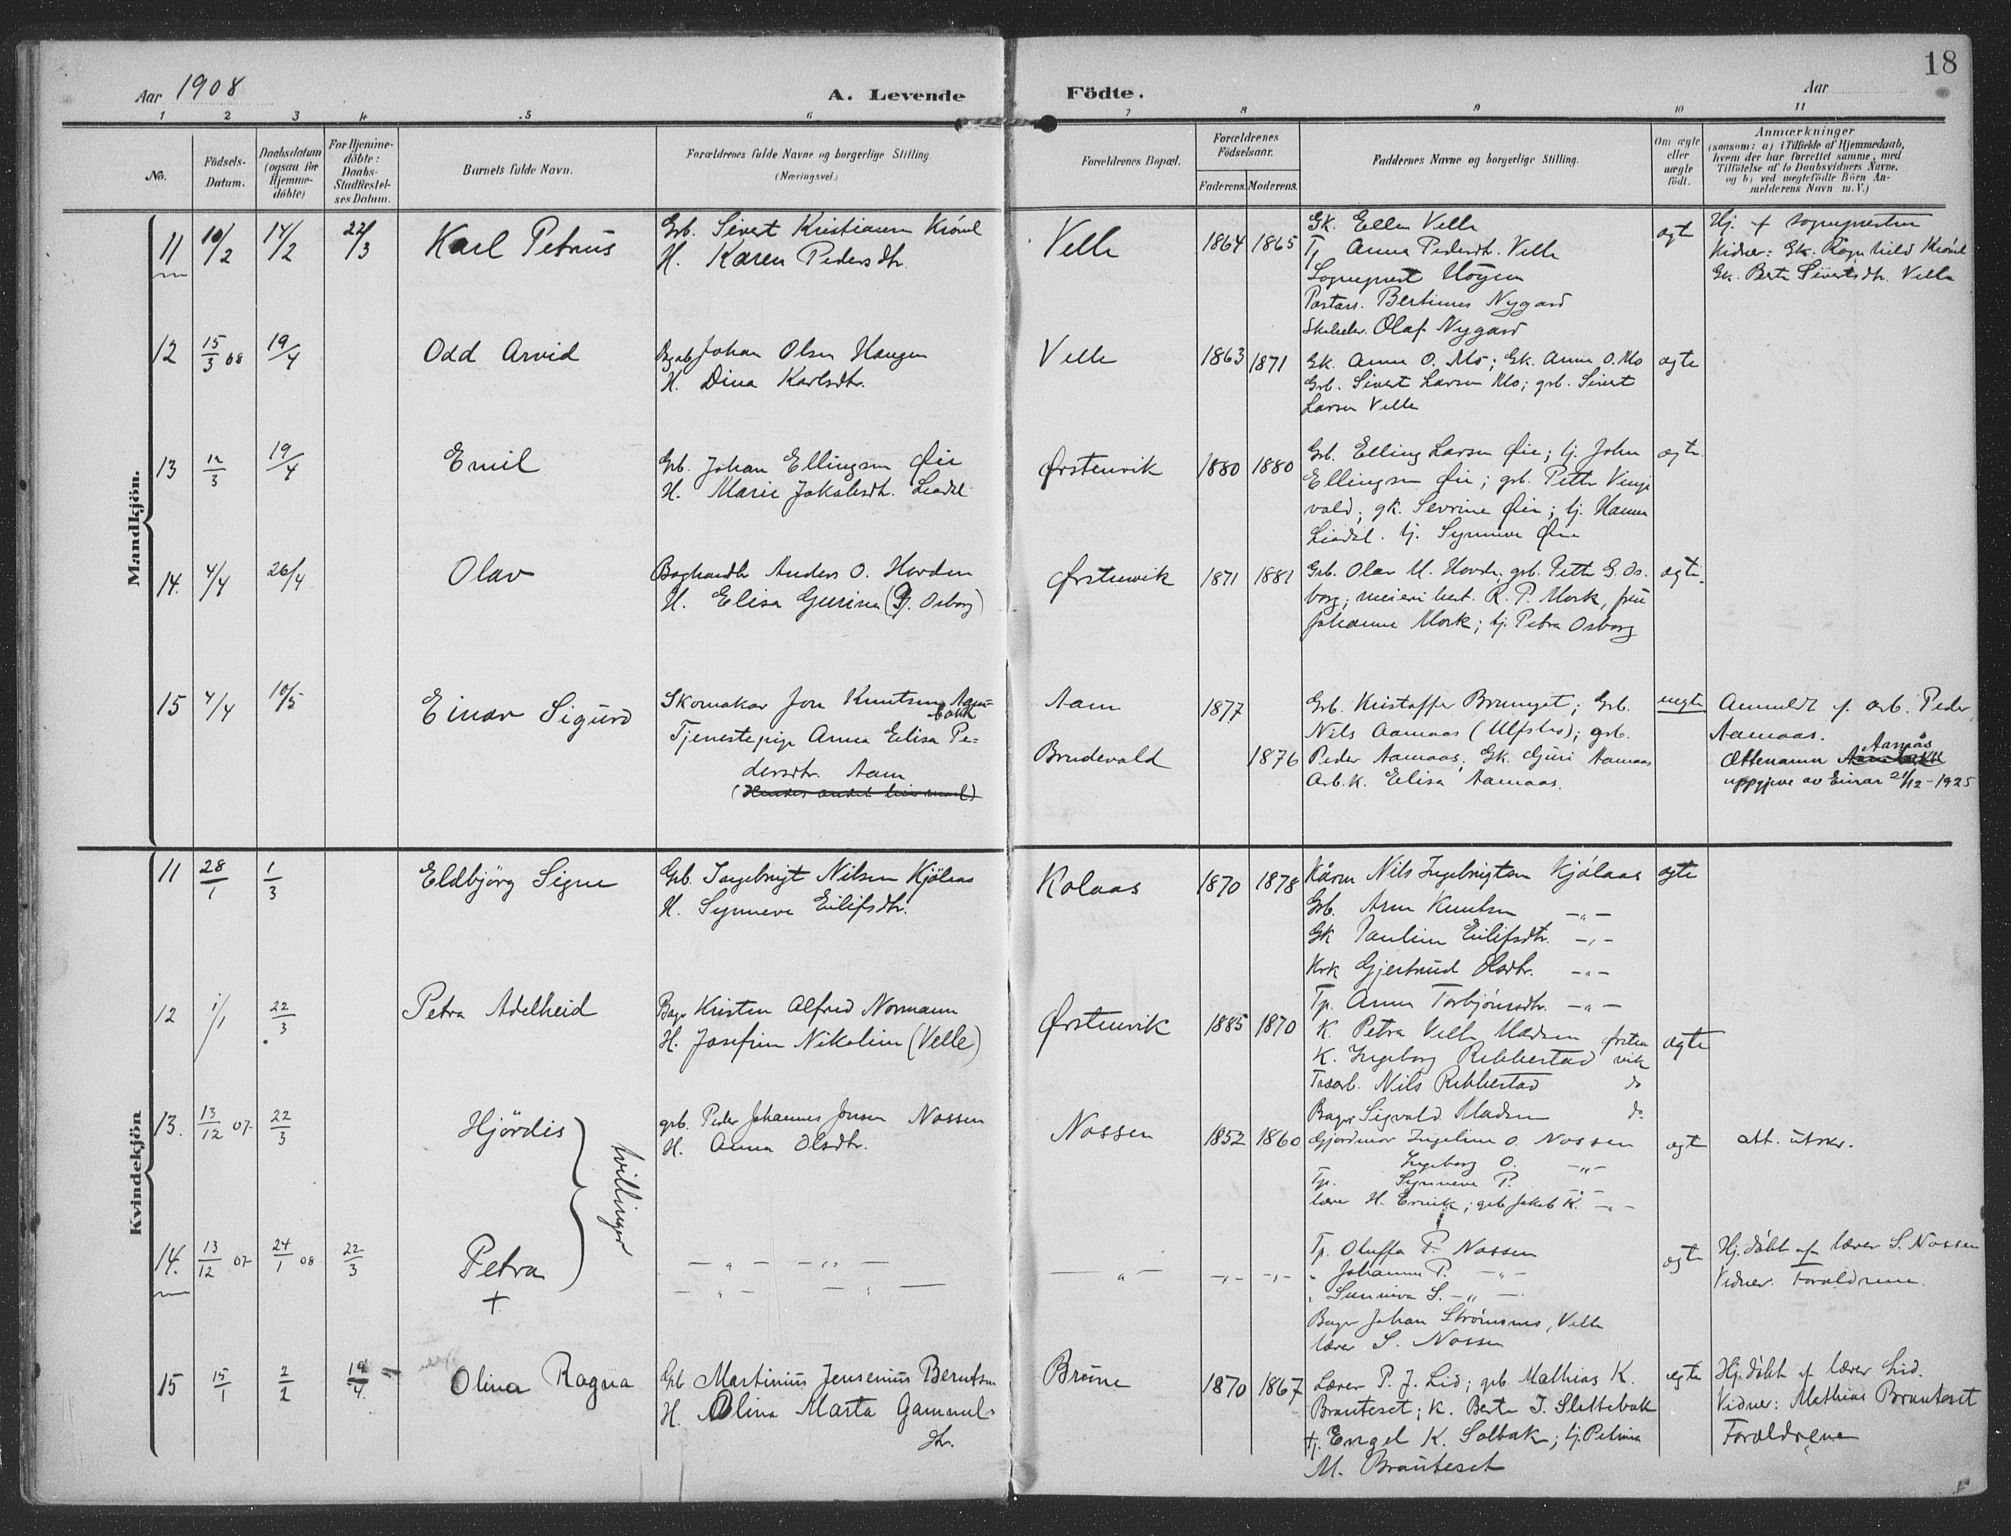 18
Aar 1908
A. Levende Födte.
Aar
1 2 3 4 5 6 7 8 9 10 11
No.
Födsels-Datum.
Daabsdatum (ogsaa for Hjemmedöbte)
For Hjemmedöbte: Daabs-Stadfæstelses Datum.
Barnets fulde Navn.
Forældrenes fulde Navne og borgerlige Stilling (Næringsvei.)
Forældrenes Bopæl.
Forældrenes Födselsaar.
Faderens. Moderens.
Faddernes Navne og borgerlige Stilling.
Om ægte eller uægte födt.
Anmærkninger
(saasom: a) i Tilfælde af Hjemmedaab,
hvem der har forrettet samme, med
Tilföielse af to Daabsvidners Navne,
og b) ved uægtefödte Börn An-
melderens Navn m. V.)
Mandkjön.
11 10/2 14/2 22/3 Karl Petrus
Grb. Sivert Kristiansen
H. Karen Pedersdtr.
Velle 1864 1865
Gk. Ellen Velle
Tj. Anna Pedersdt. Velle
Sogneprest Høgen
Postass. Bertinus Nygard
Olaf Nygard
ægte
Hj. af sognepresten
Vidner: Gk. Ragnhild
Gk. Berte Sivertsdtr. Velle
12 15/3 08 19/4 Odd Arvid
Johan Olsen Haugen
H. Dina Karlsdtr.
Velle 1863 1871
Gk. Anna O. Mo; Gk. Anne O. Mo
Grb. Sivert Larsen Mo; grb. Sivert
Larsen Velle
ægte
13 12/3 19/4 Emil
Grb. Johan Ellingsen Øie
H. Marie Jakobsdtr. Liadal
Ørstenvik 1880 1880
Grb. Elling Larsen Øie; tj. John
Ellingsen Øie; grb. Petter
vald; gk. Sevrine Øie; tj. Hanna
Liadal. tj. Synneve Øie
ægte
14. 4/4 26/4 Olav
Boghandler Anders O. Hovden
H. Elisa Gurina (G. Osborg)
Ørstenvik 1871 1881
Grb. Olav M. Hovde, grb. Petter G. Os-
borg; meieribest. R. P. Mork, fru
Johanne Mork; tj. Petra Osborg
ægte
15 4/4 10/5 Einar Sigurd
Skomakar Jon Knutsen
Tjenestepige Anna Elisa Pe-
dersdtr. Aam
Aam 1877
Brudevold 1876
Grb. Kristoffer; Grb.
Nils Aamaas (Ulfsti); grb.
Peder Aamaas, Gk. Guri Aamaas
Arb.k. Elisa Aamaas.
uegte
Anmeldt af arb. Peder
Aamaas.
Ættenamn Aamås
uppgjeve av Einar 21/12-1925
Kvindekjön
11 28/1 1/3 Eldbjörg Signe
Grb. Ingebrigt Nilsen Kjölaas
H. Synneve Eilifsdtr.
Kolaas 1870 1878
Kårm Nils Ingebrigtsen Kjölaas
Grb. Arne Knutsen -"-
Gk Pauline Eilifsdtr. -"-
Gjertrud Olsdtr. -"-
Tp. Anna Torbjörnsdtr. -"-
ægte
12 1/1 22/3 Petra Adelheid
Bager Kristen Alfred Normann
H. Josefine Nikoline (Velle)
Ørstenvik 1885 1870
K Petra Velle Madsen Ørsten
K. Ingeborg Ribbestad vik
Nils Ribbestad do
Bager Sigvald Madsen do
ægte
13. 13/12 07 22/3 Hjördis
tvillinger
grb. Peder Johannes Jonsen Nossen
H. Anna Olsdtr.
Nossen 1852 1860
Gjordmor Ingeline O. Nossen
Ingeborg O. -"-
Tp. Synneve P. -"-
lærer H. Ervik; grb Jakob K. -"-
ægte
att. utskr.
14. 13/12 07 24/1 08 22/3 Petra
+
-"- -"-
-"- -"-
-"- -"- -"-
Tp. Oluffa P. Nossen
" Johanna P. -"-
" Sunniva S. -"-
Bager Johan Strömsnes, Velle
lærer S. Nossen
ægte
Hj. döbt af lærer S. Nossen
Vidner. Forældrene.
15 15/1 2/2 19/4 Olina Ragna
Grb Martinus Jensenius Berntsen
H. Olina Marta Gammels-
dtr.
Brune 1870 1867
Lærer P. J. Lid; grb. Mathias K.
Brauteset; K. Berte I. Slettebak
tj. Engel K. Solbak; tj. Petrina
M. Brauteset
ægte
Hj. döbt af lærer Lid.
Vidner: Mathias Brauteset
Forældrene